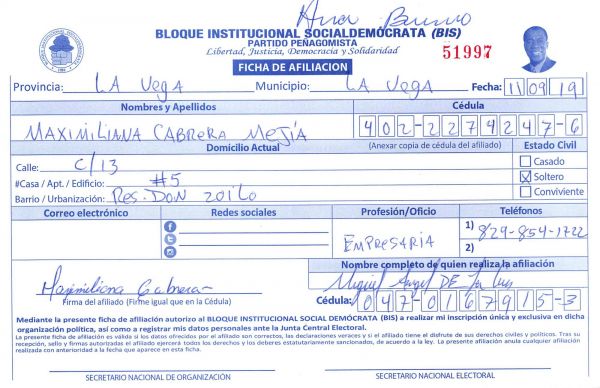 BLOQUE INSTITUCIONAL SOCIALDEMÓCRATA (BIS)
PARTIDO PEÑAGOMISTA
Libertad, Justicia, Democracia y Solidaridad
51997
FICHA DE AFILIACION
Provincia: LA VEGA Municipio: LA VEGA Fecha: 11/09/19
Nombres y Apellidos Cédula
MAXIMILIANA CABRERA MEJÍA 402-2274247-6
Domicilio Actual (Anexar copia de cédula del afiliado) Estado Civil
Calle: C/13 Casado
#Casa / Apt. / Edificio: #5 X Soltero
Barrio / Urbanización: Res. DON ZOILO Conviviente
Correo electrónico Redes sociales Profesión/Oficio Teléfonos
EMPRESARIA 1) 829-854-1722
2)
Nombre completo de quien realiza la afiliación
Maximiliana Cabrera Miguel Angel DE
Firma del afiliado (Firme igual que en la Cédula) Cédula: 047-0167915-3
Mediante la presente ficha de afiliación autorizo al BLOQUE INSTITUCIONAL SOCIAL DEMÓCRATA (BIS) a realizar mi inscripción única y exclusiva en dicha
organización política, así como a registrar mis datos personales ante la Junta Central Electoral.
La presente ficha de afiliación es válida si los datos ofrecidos por el afiliado son correctos, las declaraciones veraces y si el afiliado tiene el disfrute de sus derechos civiles y políticos. Tras su
recepción, sello y firmas autorizadas el afiliado ejercerá todos los derechos y los deberes estatutariamente sancionados, de acuerdo a la ley. La presente afiliación anula cualquier afiliación
realizada con anterioridad a la fecha que aparece en esta ficha.
SECRETARIO NACIONAL DE ORGANIZACIÓN SECRETARIO NACIONAL ELECTORAL